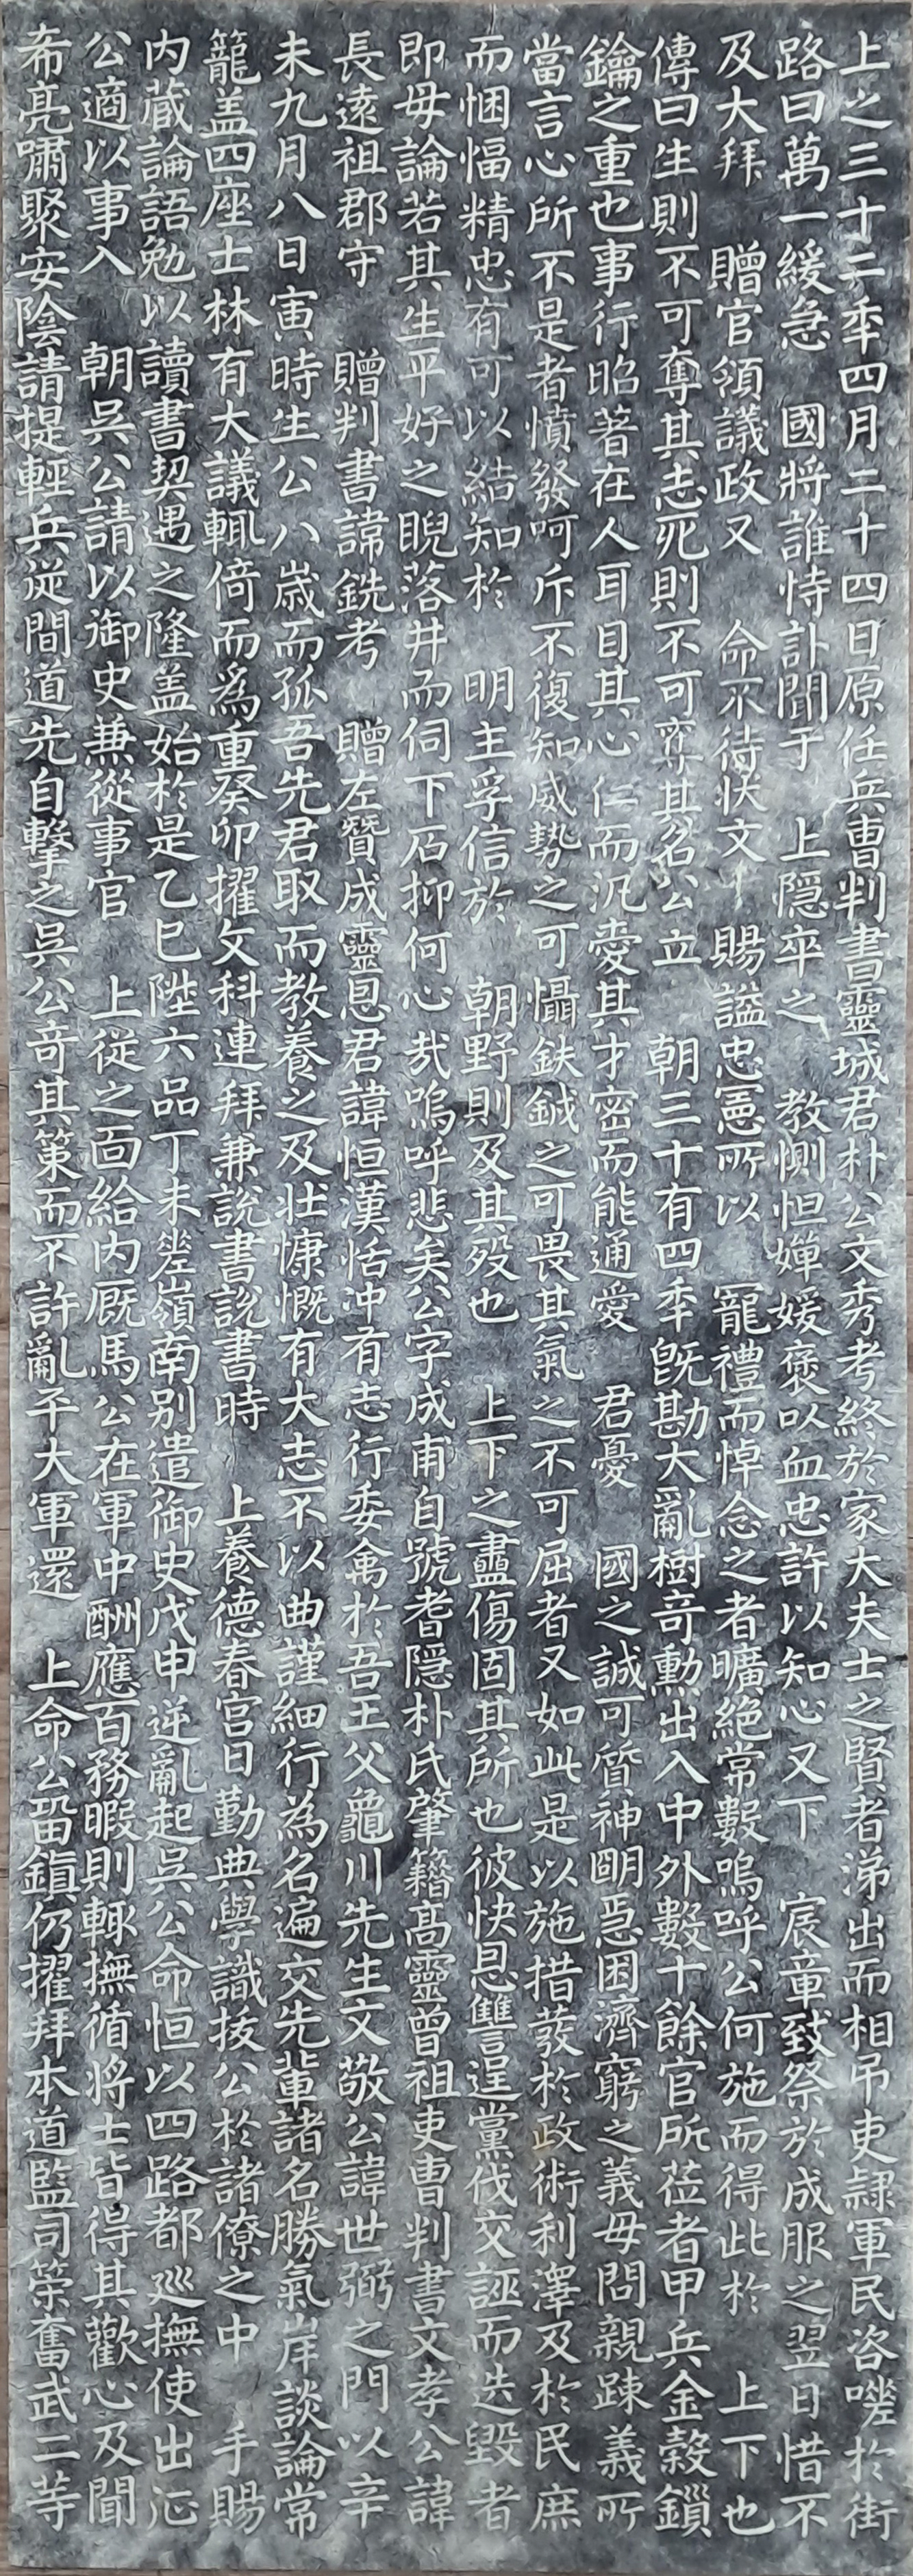 上之三十二年四月二十四日原任兵曹判書靈城君朴公文秀考終於家大夫士之賢者涕出而相吊吏隷軍民咨嗟於街
路曰萬一緩急 國將誰恃訃聞于 上隱卒之 教惻怛嬋媛褒以血忠許以知心又下 宸章致祭於成服之翌日惜不
及大拜 贈官領議政又 命不待狀文 賜謚忠憲所以 寵禮而悼念之者曠絶常數嗚呼公何施而得此於 上下也
傳曰生則不可奪其志死則不可奪其名公立 朝三十有四年旣勘大亂樹奇勳出入中外數十餘官所莅者甲兵金穀鎖
鑰之重也事行昭著在人耳目其心仁而汎愛其才密而能通愛 君憂 國之誠可質神明急困濟窮之義毋問親踈義所
當言心所不是者憤發呵斥不復知威勢之可懾鈇鉞之可畏其氣之不可屈者又如此是以施措發於政術利澤及於民庶
而悃愊精忠有可以結知於 明主孚信於 朝野則及其歿也 上下之衋傷固其所也彼快恩讐逞黨伐交誣而造毁者
即毋論若其生平好之睨落井而伺下石抑何心㢤嗚呼悲矣公字成甫自號耆隱朴氏肇籍高靈曾祖吏曹判書文孝公諱
長遠祖郡守 贈判書諱銑考 贈左賛成靈恩君諱恒漢恬冲有志行委禽於吾王父龜川先生文敬公諱世弼之門以辛
未九月八日寅時生公八歲而孤吾先君取而教養之及壯慷慨有大志不以曲謹細行為名遍交先輩諸名勝氣岸談論常
籠盖四座士林有大議輒倚而爲重癸卯擢文科連拜兼說書說書時 上養德春宮日勤典學識拔公於諸僚之中 手賜
内蔵論語勉以讀書契遇之隆盖始於是乙巳陞六品丁未差嶺南別遣御史戊申逆亂起吳公命恒以四路都廵撫使出㳂
公適以事入 朝吳公請以御史兼從事官 上從之面給内厩馬公在軍中酬應百務暇則輒撫循將士皆得其歡心及聞
希亮嘯聚安陰請提輕兵從間道先自擊之吳公奇其策而不許亂平大軍還 上命公留鎮仍擢拜本道監司策奮武二等